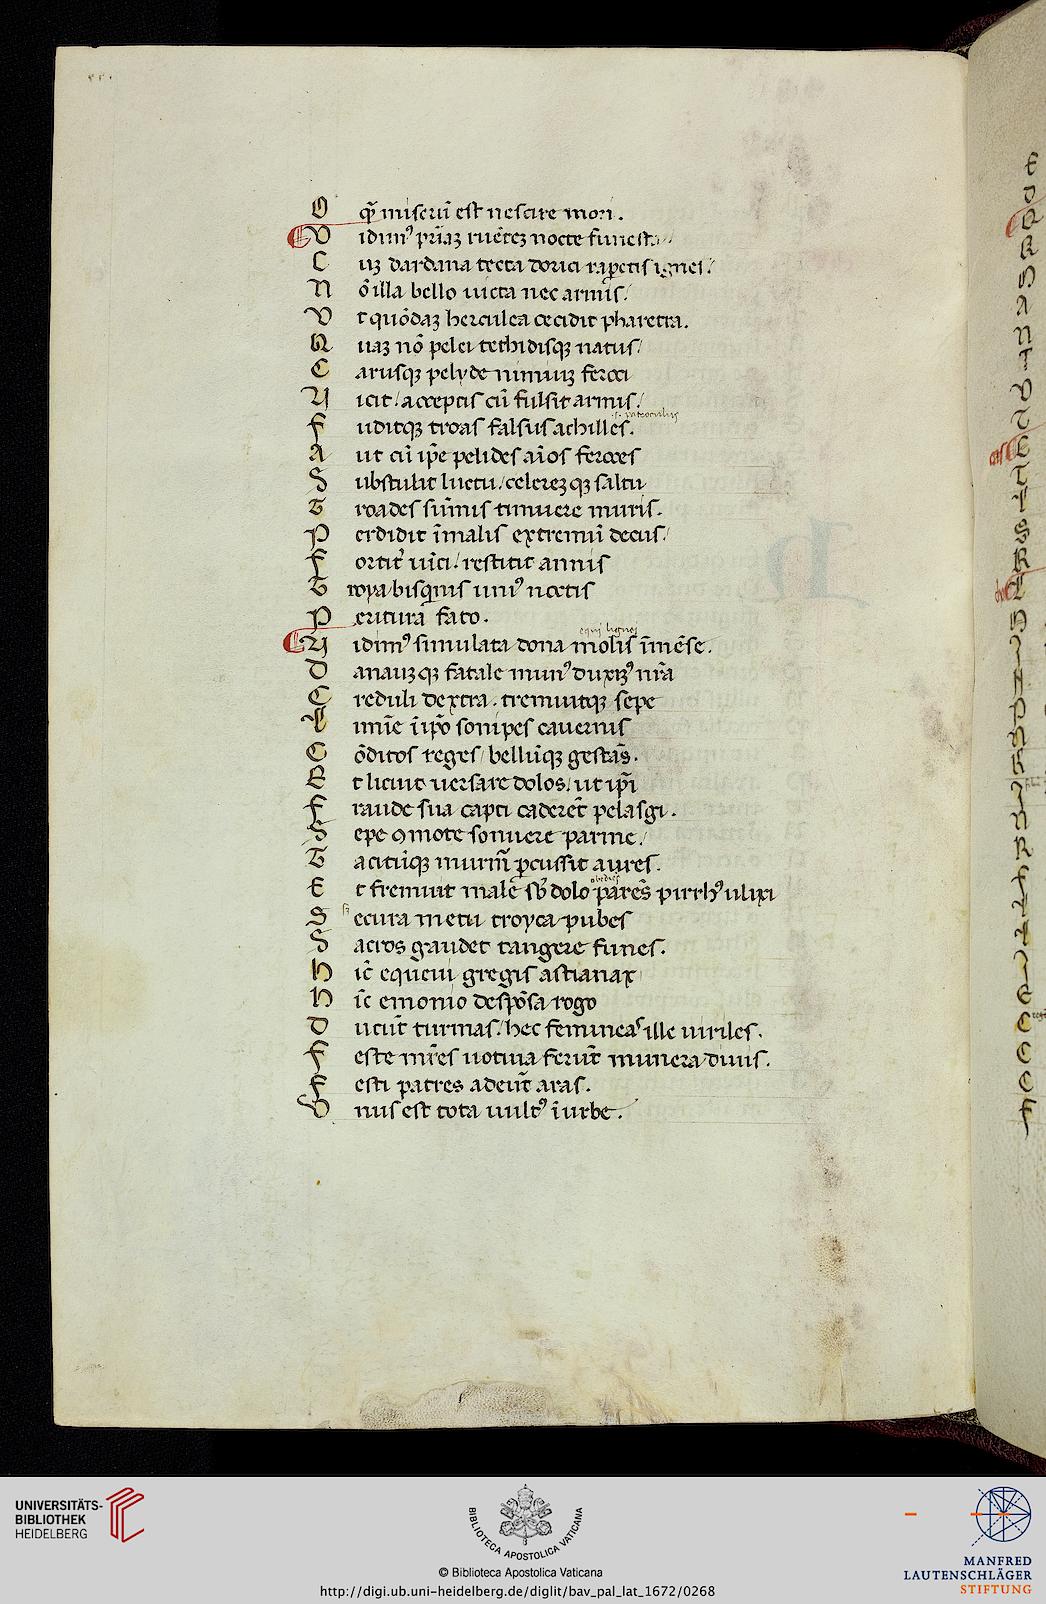 O qͣ miserū est nescire mori.
V idimꝰ pr̄iaꝫ ruētēꝫ nocte funesta
C uꝫ dardana tecta dorici raperetis ignes/
N ō illa bello uicta nec armis/
V t quōdaꝫ herculea cecidit pharetra.
Q uaꝫ nō pelei tethidisqꝫ natus/
C arusqꝫ pelyde nimiuꝫ feroci
V icit/acceptis cū fulsit armis/
s. patroculus
F uditqꝫ troas falsus achilles.
A ut cū ip̄e pelides aīos feroces
S ubstulit luctu/celereꝫqꝫ saltu
T roades sūmis timuere muris.
P erdidit ī malis extremū decus/
F ortit̾ uīci/restitit annis
T roya bisqinis uniꝰ noctis
P eritura fato.
equi lignei
V idimꝰ simulata dona molis īmēse.
D anauꝫqꝫ fatale munꝰ duxiꝫꝰ nr̄a
C reduli dextra. tremuitqꝫ sepe
L imīe ī ip̄o sonipes cauernis
C ōditos reges/bellūqꝫ gestās.
E t licuit uersare dolos/ut ip̄i
F raude sua capti caderēt pelasgi.
S epe ꝯmote sonuere parme/
T acitūqꝫ murm̄ ꝑcussit aures.
obediēs
E t fremuit male sb̄ dolo parēs pirrhꝰ ulixi
S ecura metu troyca pubes
S acros gaudet tangere funes.
H ic̄ equeui gregis astianax
H ic̄ emonio despōsa rogo
D ucūt turmas/hec femineas ille uiriles.
F este mr̄es uotiua ferūt munera diuis.
F esti patres adeūt aras.
V nus est tota uultꝰ ī urbe.
UNIVERSITÄTS-
BIBLIOTHEK
HEIDELBERG
BIBLIOTECA APOSTOLICA VATICANA
© Biblioteca Apostolica Vaticana
http://digi.ub.uni-heidelberg.de/diglit/bav_pal_lat_1672/0268
MANFRED
LAUTENSCHLÄGER
STIFTUNG